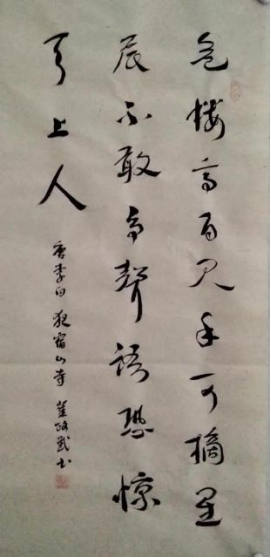 危楼高百尺手可摘星
辰不敢高聲語恐惊
天上人
唐李白夜宿山寺